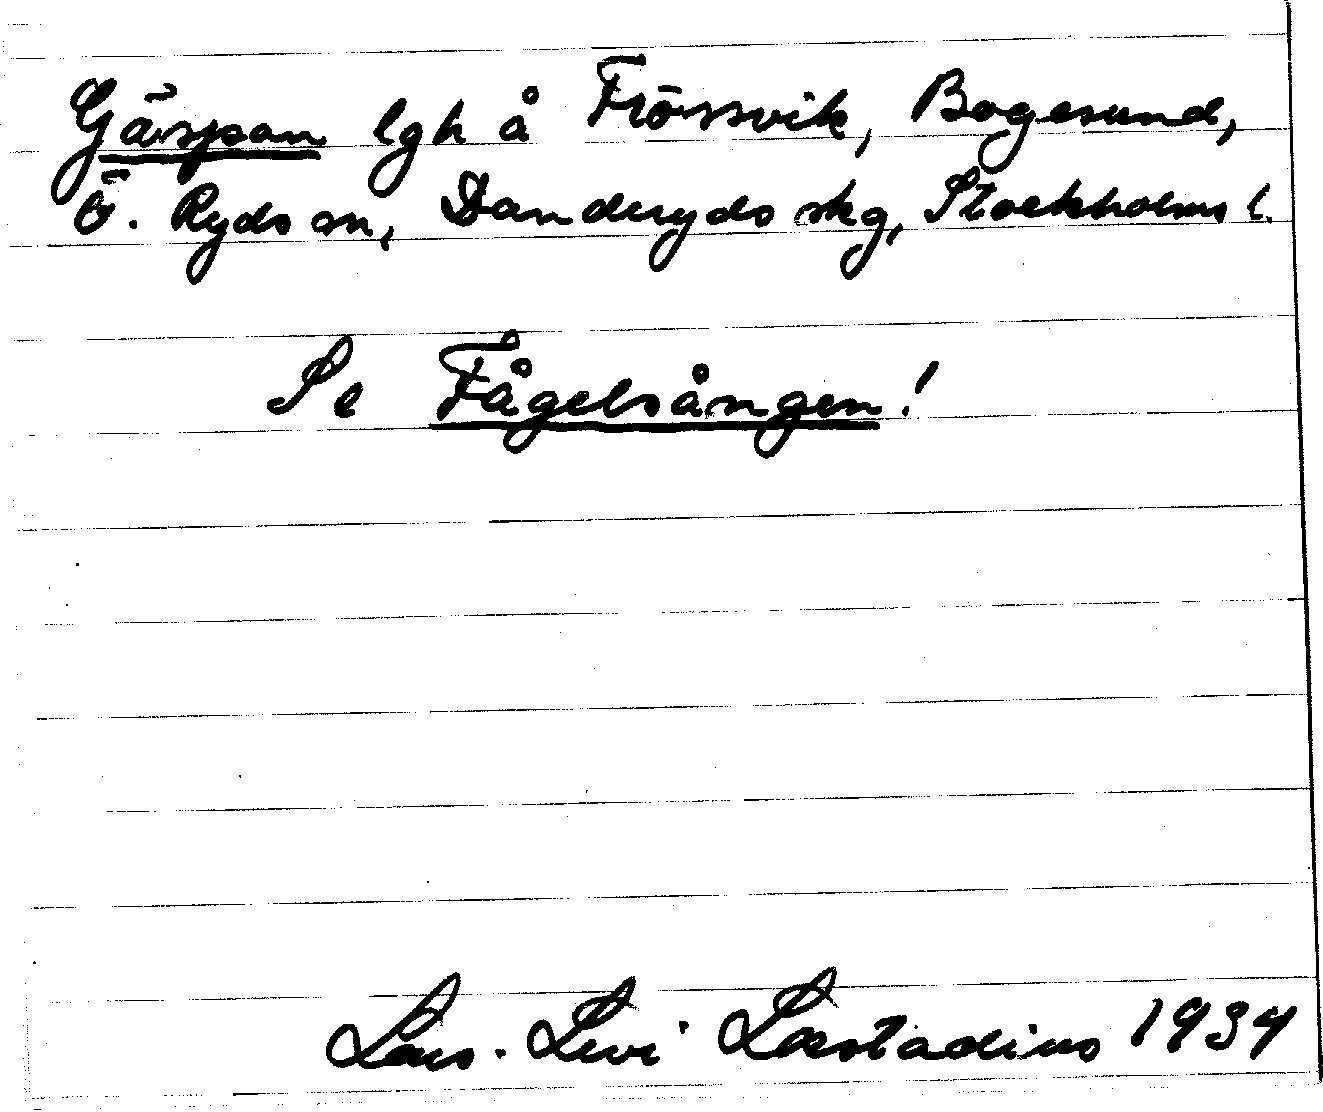 Gärspan lgh å Frösvik, Bogesund,
Ö. Ryds sn, Danderyds skg, Stockholms l.
Se Fågelsången!
Lars-Levi Læstadius 1934